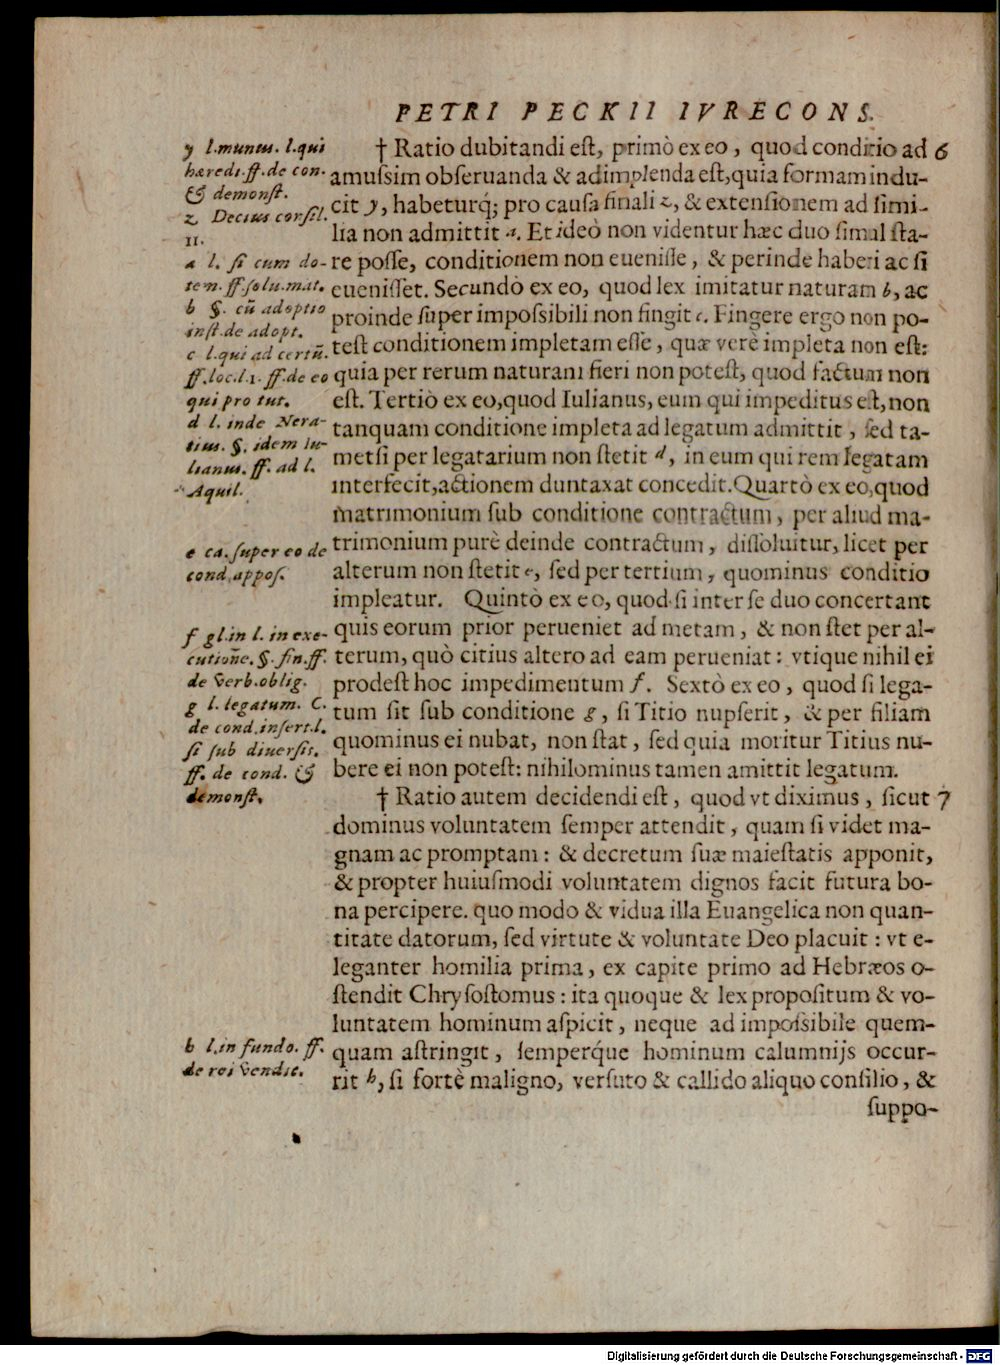 PETRI PECKII IVRECONS.
† Ratio dubitandi est, primò ex eo, quod conditio ad 6
amussim obseruanda & adimplenda est, quia formam indu-
cit y, habeturq́; pro causa finali z, & extensionem ad simi-
lia non admittit a. Et ideò non videntur hæc duo simul sta-
re posse, conditionem non euenisse, & perinde haberi ac si
euenisset. Secundò ex eo, quod lex imitatur naturam b, ac
proinde super impossibili non fingit c. Fingere ergo non po-
test conditionem impletam esse, quæ verè impleta non est:
quia per rerum naturam fieri non potest, quod factum non
est. Tertiò ex eo, quod Iulianus, eum qui impeditus est, non
tanquam conditione impleta ad legatum admittit, sed ta-
metsi per legatarium non stetit d, in eum qui rem legatam
interfecit, actionem duntaxat concedit. Quartò ex eo, quod
matrimonium sub conditione contractum, per aliud ma-
trimonium purè deinde contractum, dissoluitur, licet per
alterum non stetit e, sed per tertium, quominus conditio
impleatur. Quintò ex eo, quod si inter se duo concertant
quis eorum prior perueniet ad metam, & non stet per al-
terum, quò citius altero ad eam perueniat: vtique nihil ei
prodest hoc impedimentum f. Sextò ex eo, quod si lega-
tum sit sub conditione g, si Titio nupserit, & per filiam
quominus ei nubat, non stat, sed quia moritur Titius nu-
bere ei non potest: nihilominus tamen amittit legatum.
† Ratio autem decidendi est, quod vt diximus, sicut 7
dominus voluntatem semper attendit, quam si videt ma-
gnam ac promptam: & decretum suæ maiestatis apponit,
& propter huiusmodi voluntatem dignos facit futura bo-
na percipere. quo modo & vidua illa Euangelica non quan-
titate datorum, sed virtute & voluntate Deo placuit: vt e-
leganter homilia prima, ex capite primo ad Hebræos o-
stendit Chrysostomus: ita quoque & lex propositum & vo-
luntatem hominum aspicit, neque ad impossibile quem-
quam astringit, semperq́ue hominum calumnijs occur-
rit h, si fortè maligno, versuto & callido aliquo consilio, &
suppo-
y l. munus. l. qui
hæredi. ff. de con.
& demonst.
z Decius consil.
11.
a l. si cum do-
tem. ff. solu. mat.
b §. cū adoptio
inst. de adopt.
c l. qui ad certū.
ff. loc. l. 1. ff. de eo
qui pro tut.
d l. inde Nera-
tius. §. idem Iu-
lianus. ff. ad l.
Aquil.
e ca. super eo de
cond. appos.
f gl. in l. in exe-
cutione. §. fin. ff.
de verb. oblig.
g l. legatum. C.
de cond. insert. l.
si sub diuersis.
ff. de cond. &
demonst.
h l. in fundo. ff.
de rei vendic.
Digitalisierung gefördert durch die Deutsche Forschungsgemeinschaft - DFG